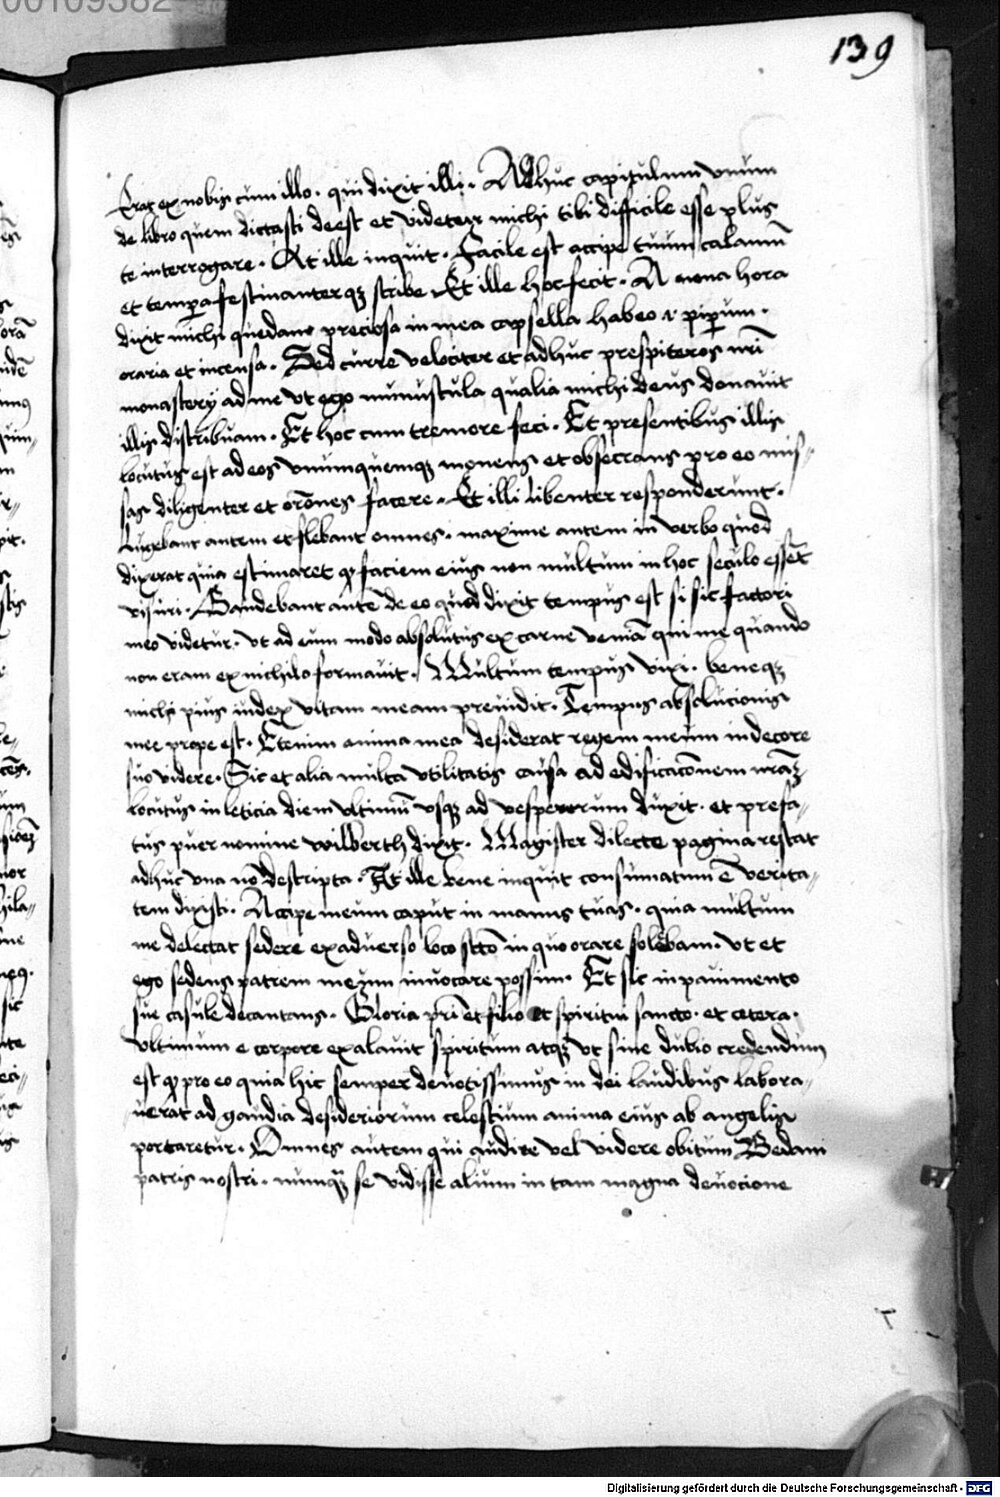 00109382
139
Erat ex nobis cum illo. qui dixit illi. Adhuc capitulum vnum
de libro quem dictasti deest et videtur michi tibi difficile esse plus
te interrogare. At ille inquit. Facile est accipe tuum calamū
et tempera festinanterqȝ scribe Et ille hoc fecit. A nona hora
dixit michi quedam preciosa in mea capsella habeo i. piperum.
oraria et incensa. Sed curre velociter et adhuc prespiteros nr̄i
monastery ad me vt ego munustula qualia michi deus donauit
illis distribuam. Et hoc cum tremore feci. Et presentibus illis
locutus est ad eos vnumquemqȝ monens et obsecrans pro eo mis-
sas diligenter et orōnes facere. Et illi libenter responderunt.
Lugebant autem et flebant omnes. maxime autem in verbo quod
dixerat quia estimaret ꝙ faciem eius non multum in hoc seculo essēt
visuri. Gaudebant autē de eo quod dixit tempus est si sic factori
meo videtur. vt ad eum modo absolutus ex carne veniā qui me quando
non eram ex nichilo formauit. Multum tempus vixi. beneqȝ
michi pius iudex vitam meam preuidit. Tempus absolucionis
mee prope est. Etenim anima mea desiderat regem meum in decore
suo videre. Sic et alia multa vtilitatis causa ad edificacōnem nrāȝ
locutus in leticia diem vltimū vsqȝ ad vesperum duxit. et prefa-
tus puer nomine wilberth dixit. Magister dilecte pagina restat
adhuc vna nō descripta. At ille bene inquit consumatum ē verita-
tem dixisti. Accipe meum caput in manus tuas. quia multum
me delectat sedere ex aduerso loco scто in quo orare solebam. vt et
ego sedens patrem meum inuocare possim. Et sic in pauimento
sue casule decantans. Gloria pr̄i et filio et spiritui sancto. et cetera.
vltimum e corpore exalauit spiritum atqȝ vt sine dubio credendum
est ꝙ pro eo quia hic semper deuotissimus in dei laudibus labora-
uerat ad gaudia desideriorum celestium anima eius ab angelis
portaretur. Omnes autem qui audire vel videre obitum Bedam
patris nostri. numqȝ se vidisse alium in tam magna deuocione
Digitalisierung gefördert durch die Deutsche Forschungsgemeinschaft - DFG